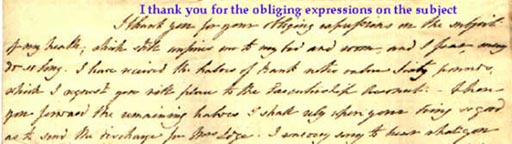 I thank you for the obliging expressions on the subject
I thank you for your obliging expressions on the subject
of my health, which still confines me to my bed and room, and I fear, may
do so long. I have received the halves of Bank notes value Sixty pounds,
which I request you will place to the Executorship Account. When
you forward the remaining halves I shall rely upon your being so good
as to send the discharge for Mrs Edge. I am very sorry to hear that you